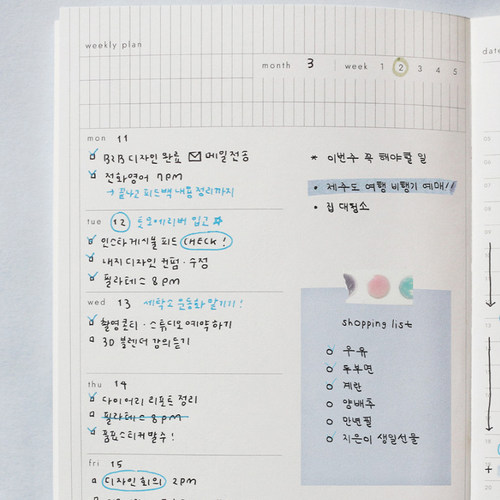 weekly plan
month 3 week 1 2 3 4 5
date
mon 11
B2B 디자인 완료 메일전송
전화영어 7PM
→ 끝나고 피드백 내용 정리까지
tue 12 토모에리버 입고
인스타 게시물 피드 CHECK!
내지 디자인 컨펌·수정
필라테스 8PM
wed 13 세탁소 운동화 맡기기!
촬영 콘티·스튜디오 예약하기
3D 블렌더 강의듣기
thu 14
다이어리 리포트 정리
필라테스 8PM
홈폼스티커 발수!
fri 15
디자인 회의 2PM
* 이번주 꼭 해야할 일
• 제주도 여행 비행기 예매!!
• 집 대청소
shopping list
우유
두부면
계란
양배추
만년필
지은이 생일선물